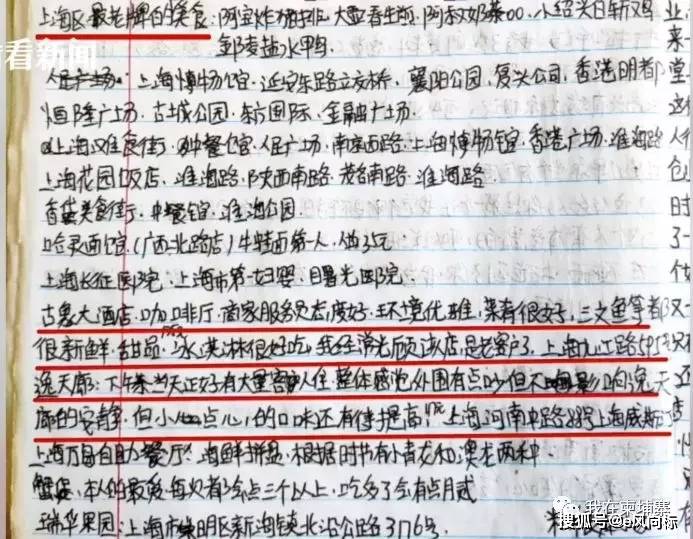 看看新闻
上海区最老牌的美食:阿宝炸猪排、大壶春生煎、阿姨奶茶00、小绍兴白斩鸡
邹凌盐水鸭
人民广场:上海博物馆、延安东路立交桥、襄阳公园、复兴公司、香港明都
恒隆广场、古城公园、东方国际、金融广场
上海美食街、中餐馆、人民广场、南京西路、上海博物馆、香港广场、淮海路
上海花园饭店、淮海路、陕西南路、茂名南路、淮海路
香港美食街、中餐馆、淮海公园
哈灵面馆、(广西北路店)牛特面第一人、做25元
上海长征医院、上海市第一妇婴、曙光医院
古象大酒店、咖啡厅、商家服务员态度好、环境优雅、菜肴很好、三文鱼等都
很新鲜、甜品、冰淇淋很好吃、我经常光顾该店、是老客户了、上海九江路595号
逸天廊:下午茶当天正好有大量客人住、整体感觉外围有点吵但不影响逸天
廊的安静、但小点心的口味还有待提高、上海河南中路88号上海威斯汀
上海万易自助餐厅、海鲜拼盘、根据时节有小青龙和澳龙两种
蟹逅、本人的最爱、每次有3个点三个以上、吃多了会有点月贰
瑞华果园:上海市崇明区新海镇北沿公路3776号
业
来
堂
人
仓
时
了
一
做
我在柬埔寨
搜狐号@e风向标